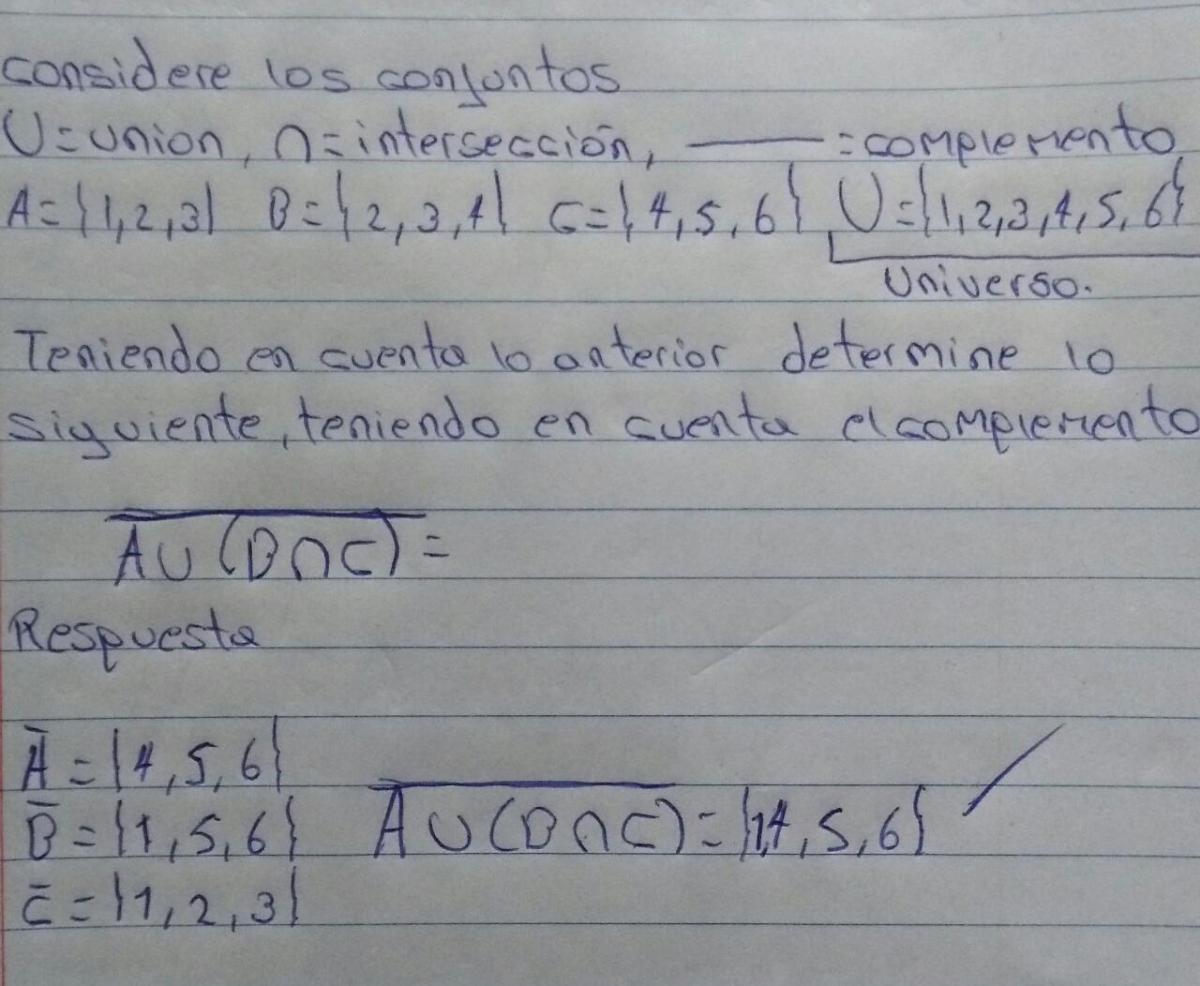 considere los conjuntos
U=union, ∩=intersección, —— =complemento
A={1,2,3} B={2,3,4} C={4,5,6} U={1,2,3,4,5,6}
Universo.
Teniendo en cuenta lo anterior determine lo
siguiente, teniendo en cuenta el complemento
A̅∪̅(̅B̅∩̅C̅)̅=
Respuesta
A̅={4,5,6}
B̅={1,5,6} A̅∪̅(̅B̅∩̅C̅)̅={1,4,5,6}
C̅={1,2,3}